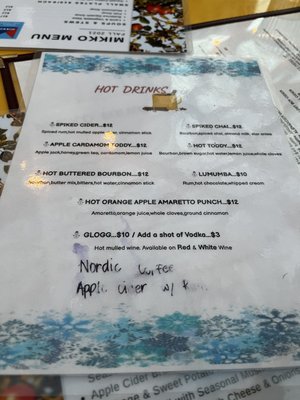 MIKKO MENU
FALL 2022
HOT DRINKS
SPIKED CIDER...$12
Spiced rum,hot mulled apple cinnamon stick.
SPIKED CHAI...$12
Bourbon,spiced chai, almond milk, star anise
APPLE CARDAMOM TODDY...$12
Apple jack,honey,green tea, cardamom,lemon juice
HOT TODDY...$12
Bourbon,brown sugar,hot water,lemon juice,whole cloves.
HOT BUTTERED BOURBON...$12
Bourbon,butter mix,bitters,hot water,cinnamon stick
LUMUMBA...$10
Rum,hot chocolate,whipped cream.
HOT ORANGE APPLE AMARETTO PUNCH...$12
Amaretto,orange juice,whole cloves,ground cinnamon
GLOGG...$10 / Add a shot of Vodka...$3
Hot mulled wine. Available on Red & White Wine
Nordic Coffee
Apple Cider w/
Apple Cider
& Sweet Potato
with Seasonal
Cheese & Onions